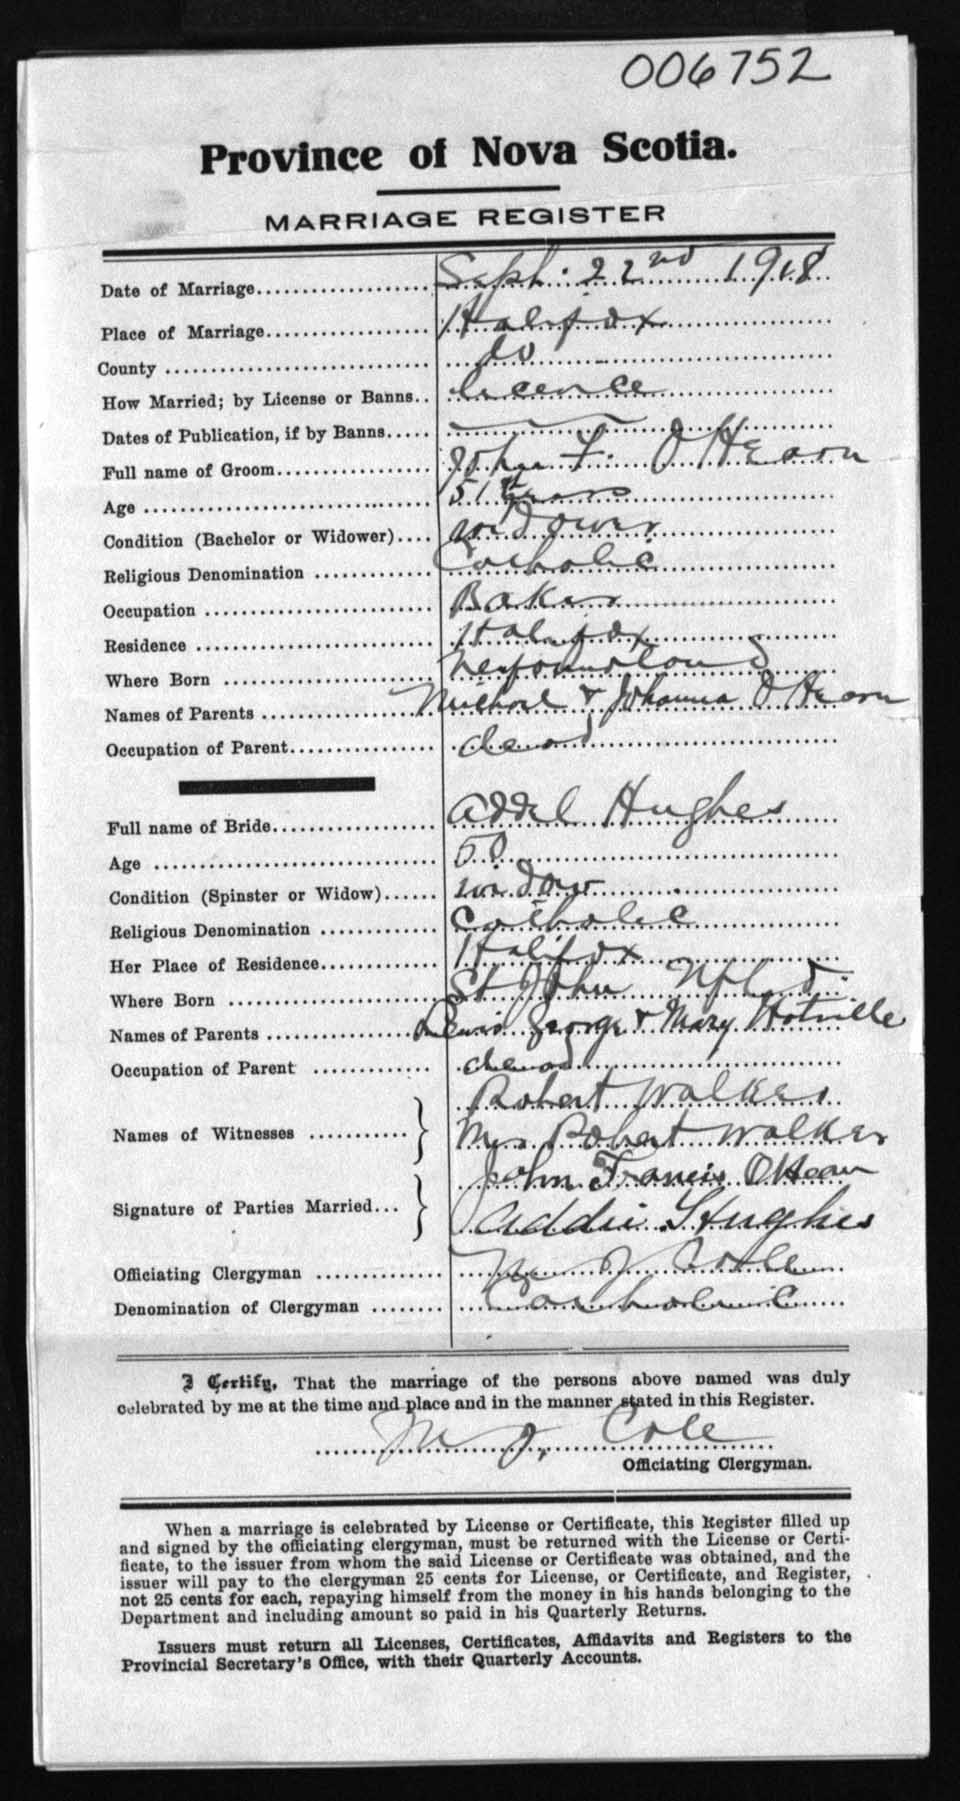 006752
Province of Nova Scotia.
MARRIAGE REGISTER
Date of Marriage Sept. 22nd 1918
Place of Marriage Halifax
County do
How Married; by License or Banns licence
Dates of Publication, if by Banns
Full name of Groom John F. O Hearn
Age 51 Years
Condition (Bachelor or Widower) widower
Religious Denomination Catholic
Occupation Baker
Residence Halifax
Where Born Newfoundland
Names of Parents Michael & Johanna O Hearn
Occupation of Parent dead
Full name of Bride Addel Hughes
Age 50
Condition (Spinster or Widow) widow
Religious Denomination Catholic
Her Place of Residence Halifax
Where Born St John Nfld
Names of Parents George & Mary
Occupation of Parent dead
Names of Witnesses Robert Walker
Mrs Robert Walker
Signature of Parties Married John Francis OHearn
Addie Hughes
Officiating Clergyman M J Cole
Denomination of Clergyman Catholic
I Certify, That the marriage of the persons above named was duly
celebrated by me at the time and place and in the manner stated in this Register.
M J, Cole
Officiating Clergyman.
When a marriage is celebrated by License or Certificate, this Register filled up
and signed by the officiating clergyman, must be returned with the License or Certi-
ficate, to the issuer from whom the said License or Certificate was obtained, and the
issuer will pay to the clergyman 25 cents for License, or Certificate, and Register,
not 25 cents for each, repaying himself from the money in his hands belonging to the
Department and including amount so paid in his Quarterly Returns.
Issuers must return all Licenses, Certificates, Affidavits and Registers to the
Provincial Secretary's Office, with their Quarterly Accounts.